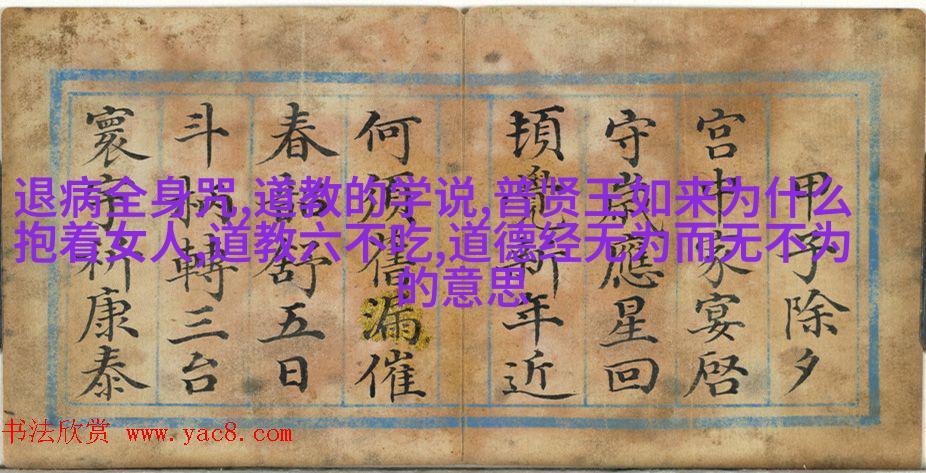 退病全身咒,道教的学说,普贤王如来为什么
抱着女人,道教六不吃,道德经无为而无不为
的意思
甲子除夕
宫中家宴啓
守歲應星回
頃新年近
何須舊漏催
春舒五日
斗柄轉三台
寰宇祈康泰
书法欣赏 www.yac8.com